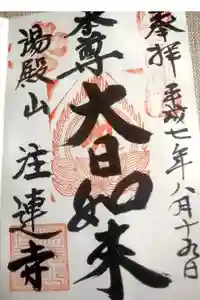 奉拝 平成七年八月十九日
本尊
大日如来
湯殿山 注連寺